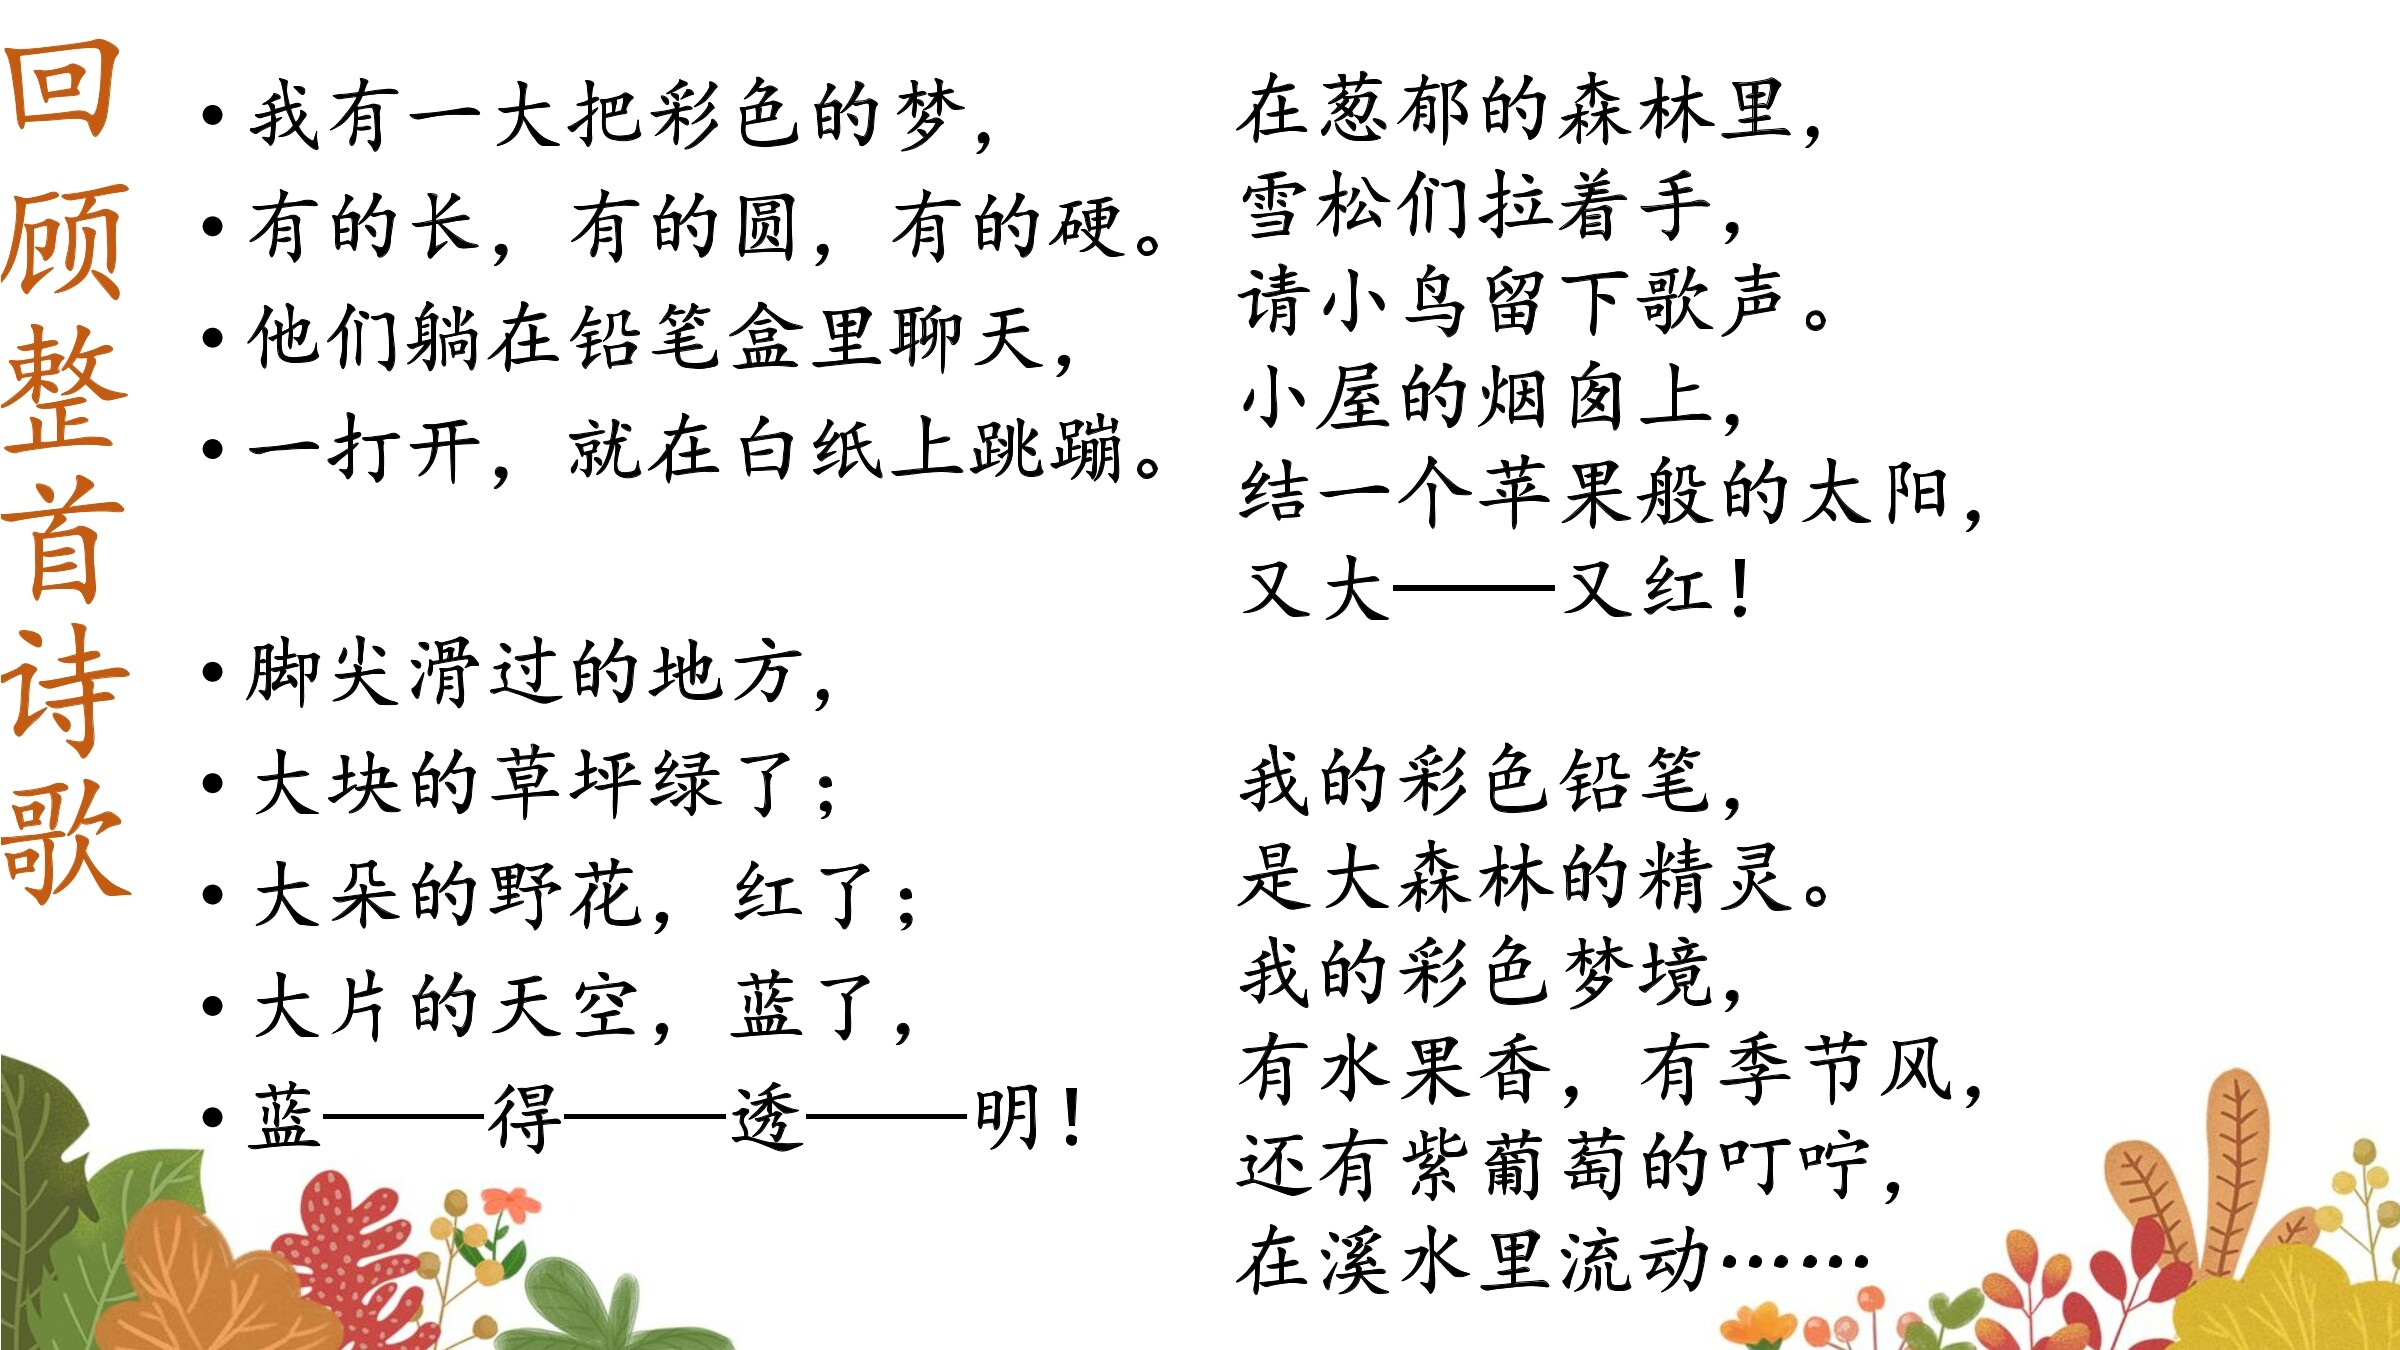 回顾整首诗歌
• 我有一大把彩色的梦，
• 有的长，有的圆，有的硬。
• 他们躺在铅笔盒里聊天，
• 一打开，就在白纸上跳蹦。
• 脚尖滑过的地方，
• 大块的草坪绿了；
• 大朵的野花，红了；
• 大片的天空，蓝了，
• 蓝——得——透——明！
在葱郁的森林里，
雪松们拉着手，
请小鸟留下歌声。
小屋的烟囱上，
结一个苹果般的太阳，
又大——又红！
我的彩色铅笔，
是大森林的精灵。
我的彩色梦境，
有水果香，有季节风，
还有紫葡萄的叮咛，
在溪水里流动……